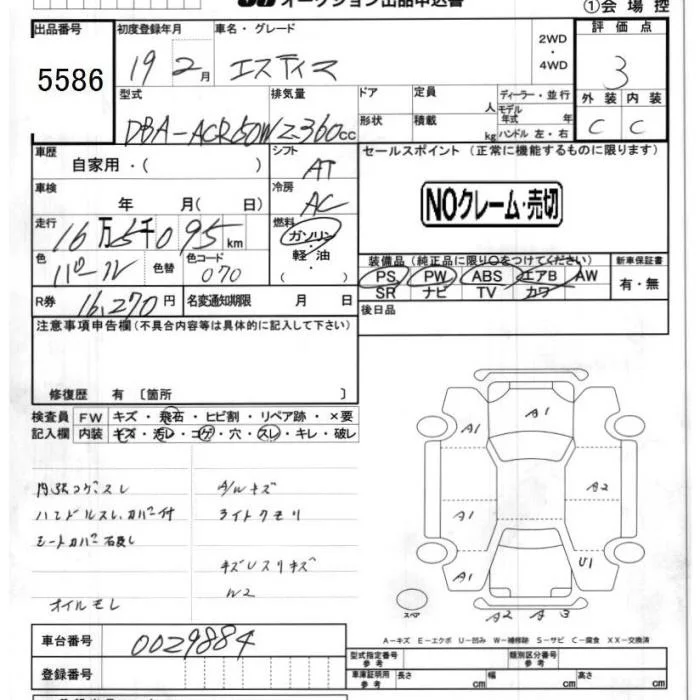 オークション出品申込書
①会場控
出品番号
5586
初度登録年月
19 2月
車名・グレード
エスティマ
2WD
・
4WD
評価点
3
外装 内装
C C
型式
DBA-ACR50W
排気量
2360cc
ドア
形状
定員 人
積載 kg
ディーラー・並行
モデル年式 年
ハンドル 左・右
車歴
自家用・( )
シフト
AT
セールスポイント (正常に機能するものに限ります)
NOクレーム・売切
車検
年 月( 日)
冷房
AC
走行
16万5千095km
燃料
ガソリン
・
軽油
( )
色
パール
色替
色コード
070
装備品 (純正品に限り○をつけてください)
PS PW ABS エアB AW
SR ナビ TV カワ
新車保証書
有・無
R券
16,270円
名変通知期限 月 日
後日品
注意事項申告欄(不具合内容等は具体的に記入して下さい)
修復歴 有 〔箇所 〕
検査員記入欄
FW キズ・飛石・ヒビ割・リペア跡・×要
内装 キズ・汚レ・コゲ・穴・スレ・キレ・破レ
内張コゲスレ
ハンドルスレ、カバー付
シートカバー
オイルモレ
A/Wキズ
ライトクモリ
キズLスリキズ
W2
A1
A1
A1
A2
A1
U1
A2 A3
スペア
A-キズ E-エクボ U-凹み W-補修跡 S-サビ C-腐食 XX-交換済
車台番号
0029884
登録番号
型式指定番号
参考
類別区分番号
参考
車庫証明用
参考
長さ cm 幅 cm 高さ cm